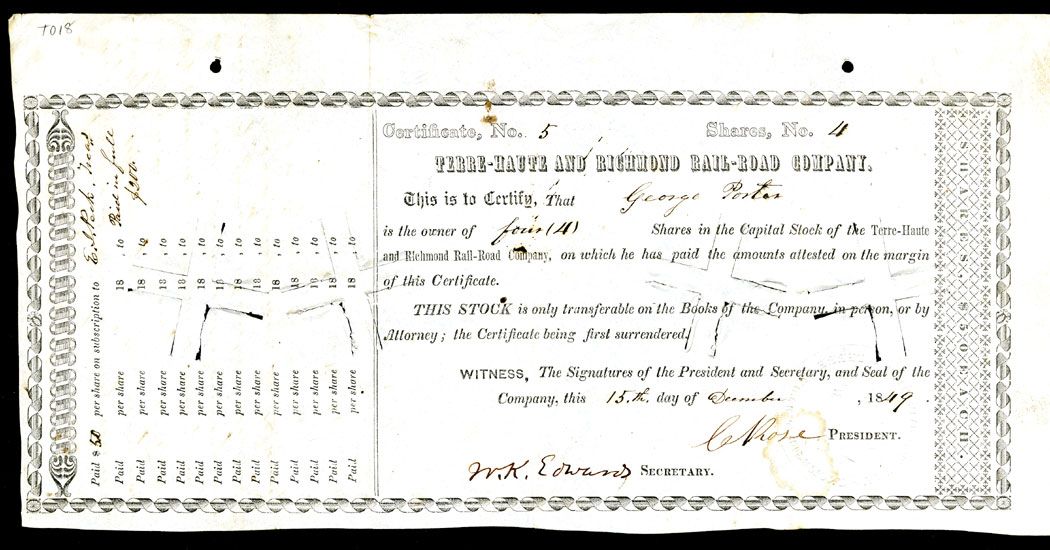 TO18
Certificate, No. 5 Shares, No. 4
TERRE-HAUTE AND RICHMOND RAIL-ROAD COMPANY.
This is to Certify, That George Porter
is the owner of four (4) Shares in the Capital Stock of the Terre-Haute
and Richmond Rail-Road Company, on which he has paid the amounts attested on the margin
of this Certificate.
THIS STOCK is only transferable on the Books of the Company, in person, or by
Attorney; the Certificate being first surrendered.
WITNESS, The Signatures of the President and Secretary, and Seal of the
Company, this 15th. day of December, 1849.
C Rose PRESIDENT.
W.K. Edwards SECRETARY.
SHARES, $50 EACH.
Paid $50 per share on subscription to E. A Peck, Treas
Paid per share 18 , to Paid in full
$200.
Paid per share 18 , to
Paid per share 18 , to
Paid per share 18 , to
Paid per share 18 , to
Paid per share 18 , to
Paid per share 18 , to
Paid per share 18 , to
Paid per share 18 , to
Paid per share 18 , to
Paid per share 18 , to